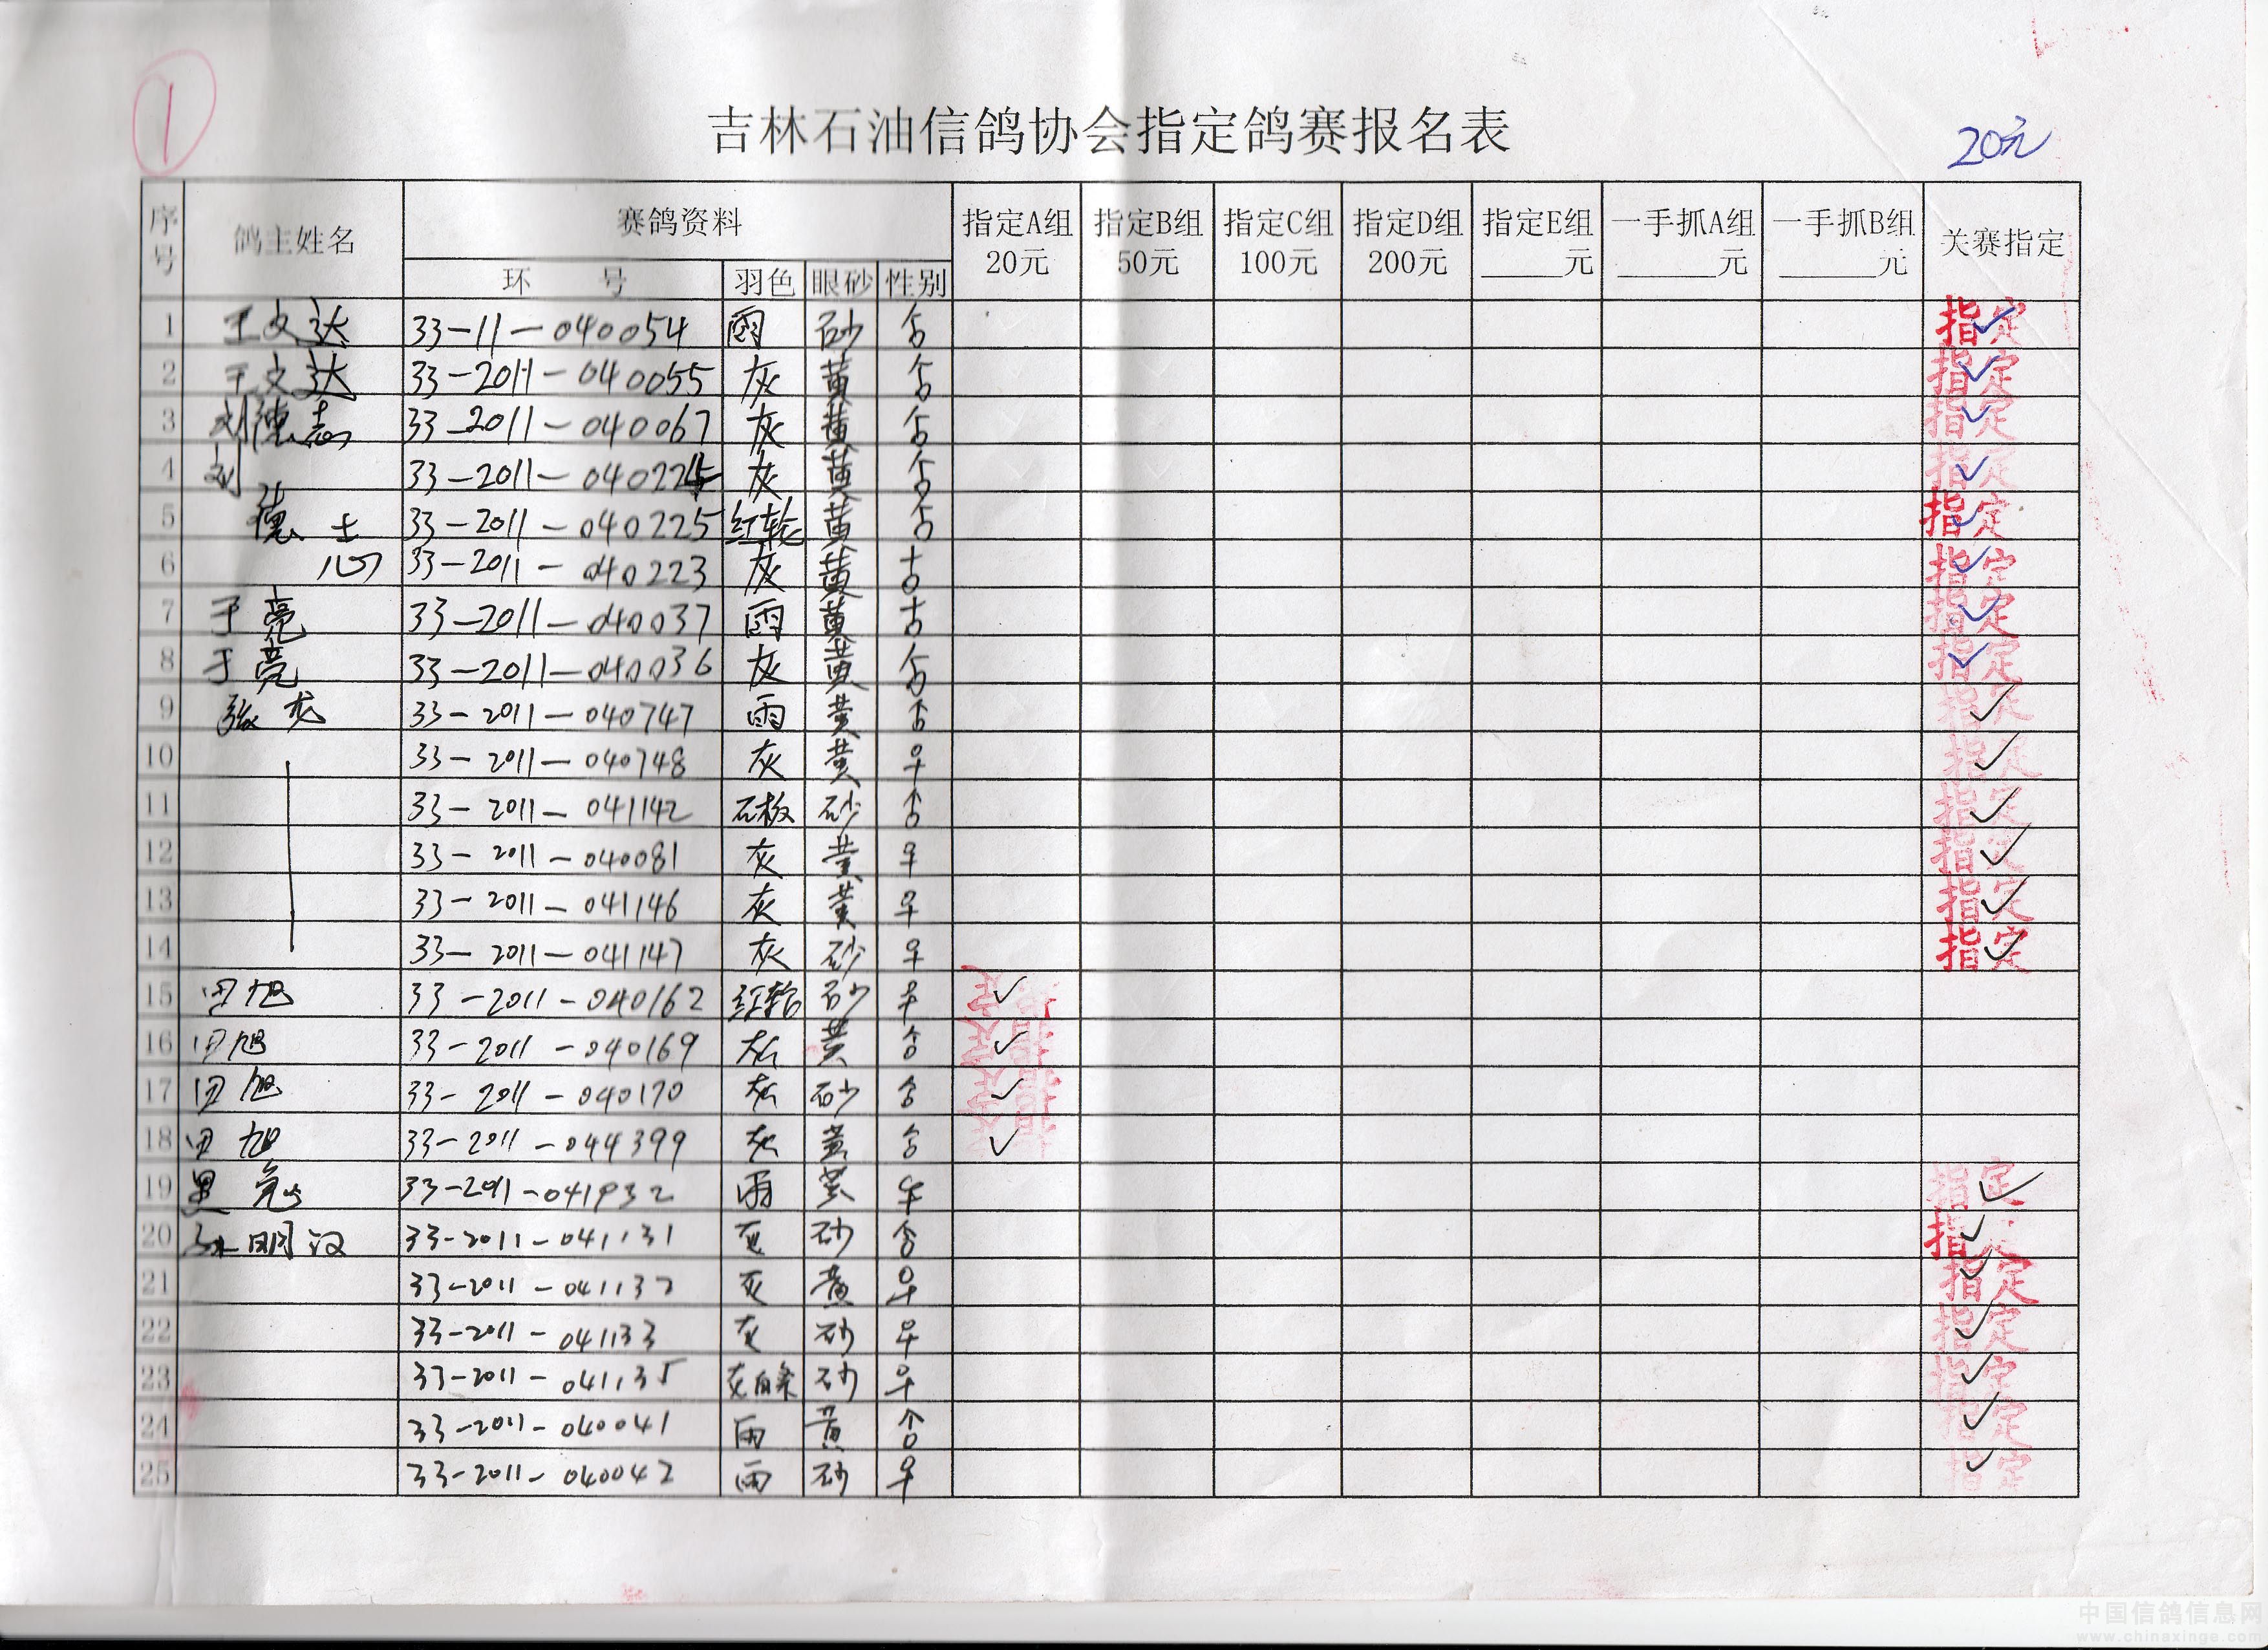 1
吉林石油信鸽协会指定鸽赛报名表
20元
序号 鸽主姓名 赛鸽资料 指定A组 20元 指定B组 50元 指定C组 100元 指定D组 200元 指定E组 ____元 一手抓A组 ____元 一手抓B组 ____元 关赛指定
环号 羽色 眼砂 性别
1 王文达 33-11-040054 雨 砂 ♂ 指定 ✓
2 王文达 33-2011-040055 灰 黄 ♂ 指定 ✓
3 刘德志 33-2011-040067 灰 黄 ♂ 指定 ✓
4 刘 33-2011-040224 灰 黄 ♂ 指定 ✓
5 德 士 33-2011-040225 红轮 黄 ♂ 指定 ✓
6 心 33-2011-040223 灰 黄 指定 ✓
7 于亮 33-2011-040037 雨 黄 指定 ✓
8 于亮 33-2011-040036 灰 黄 ♂ 指定 ✓
9 张龙 33-2011-040747 雨 黄 ♂ 指定 ✓
10 33-2011-040748 灰 黄 ♀ 指定 ✓
11 33-2011-041142 石板 砂 ♂ 指定 ✓
12 33-2011-040081 灰 黄 ♀ 指定 ✓
13 33-2011-041146 灰 黄 ♀ 指定 ✓
14 33-2011-041147 灰 砂 ♀ 指定 ✓
15 田旭 33-2011-040162 红轮 砂 ♀ 指定 ✓
16 田旭 33-2011-040169 灰 黄 ♂ 指定 ✓
17 田旭 33-2011-040170 灰 砂 ♂ 指定 ✓
18 田旭 33-2011-044399 灰 黄 ♂ 指定 ✓
19 33-2011-041932 雨 黄 ♀ 指定 ✓
20 明汉 33-2011-041131 灰 砂 ♂ 指定 ✓
21 33-2011-041132 灰 黄 ♀ 指定 ✓
22 33-2011-041133 灰 砂 ♀ 指定 ✓
23 33-2011-041135 灰白条 砂 ♀ 指定 ✓
24 33-2011-040041 雨 黄 ♂ 指定 ✓
25 33-2011-040042 雨 砂 ♀ 指定 ✓
中国信鸽信息网
www.chinaxinge.com